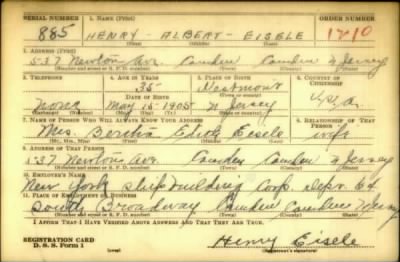 SERIAL NUMBER 1. NAME (Print) ORDER NUMBER
885 HENRY - ALBERT - EISELE 1710
(First) (Middle) (Last)
2. ADDRESS (Print)
537 Newton Ave. Camden Camden N Jersey
(Number and street or R. F. D. number) (Town) (County) (State)
3. TELEPHONE 4. AGE IN YEARS 5. PLACE OF BIRTH 6. COUNTRY OF CITIZENSHIP
35 Westmont
DATE OF BIRTH
None May 15 - 1905 N Jersey U.S.A.
(Exchange) (Number) (Mo.) (Day) (Yr.) (State or country)
7. NAME OF PERSON WHO WILL ALWAYS KNOW YOUR ADDRESS 8. RELATIONSHIP OF THAT PERSON
Mrs. Bertha Eisele wife
(Mr., Mrs., Miss) (First) (Middle) (Last)
9. ADDRESS OF THAT PERSON
537 Newton Ave. Camden Camden N Jersey
(Number and street or R. F. D. number) (Town) (County) (State)
10. EMPLOYER'S NAME
New York Shipbuilding Corp. Dept. 64
11. PLACE OF EMPLOYMENT OR BUSINESS
South Broadway Camden Camden N Jersey
(Number and street or R. F. D. number) (Town) (County) (State)
I AFFIRM THAT I HAVE VERIFIED ABOVE ANSWERS AND THAT THEY ARE TRUE.
REGISTRATION CARD Henry Eisele
D. S. S. Form 1 (over) (Registrant's signature)